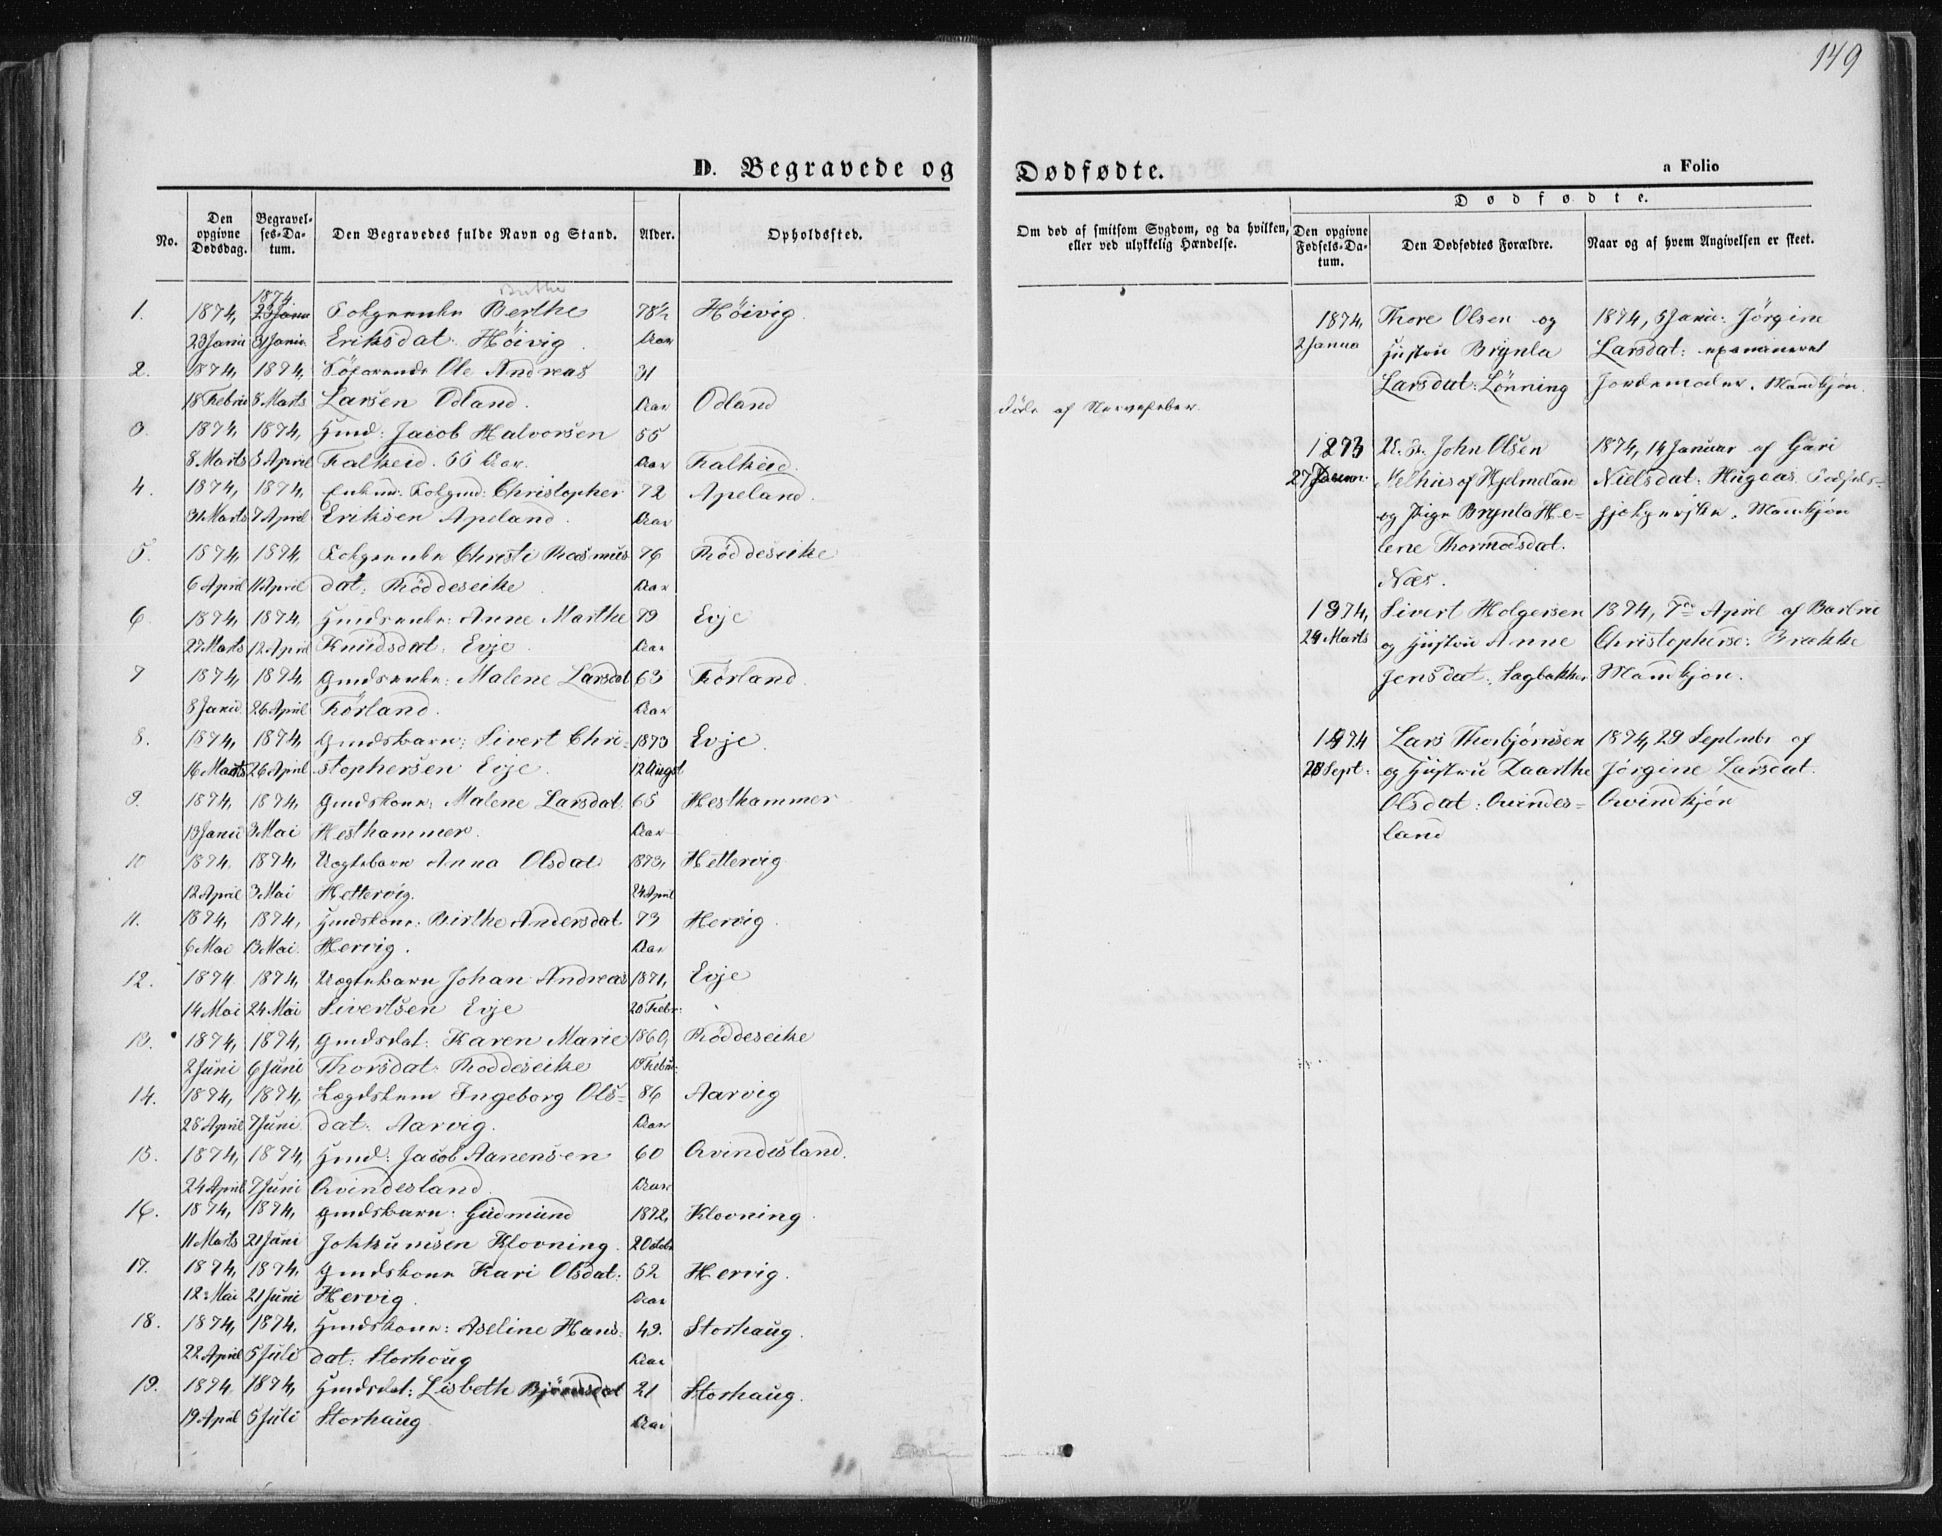 149
D. Begravede og Dødfødte.
a Folio
No.
Den opgivne Dødsdag.
Begravelses-Datum.
Den Begravedes fulde Navn og Stand.
Alder.
Opholdssted.
Om død af smitsom Sygdom, og da hvilken, eller ved ulykkelig Hændelse.
Dødfødte.
Den opgivne Fødsels-Datum.
Den Dødfødtes Forældre.
Naar og af hvem Angivelsen er skeet.
Birthe
1. 1874, 1874 Berthe 78½ Höivig.
23 Janu 31 Janu. Eriksdat: Höivig. Aar
2. 1874, 1874, Söfarende Ole Andreas 31
18 Febru 8 Marts Larsen Odland. Aar Odland
Döde af Nervefeber.
3. 1874, 1874, Gmd: Jacob Halvorsen 55
8 Marts 3 April Falkeid. 55 Aar. Aar Falkeid.
4. 1874, 1874, Enkmd: Folgmd: Christopher 72 Apeland.
31 Marts 7 April Eriksen Apeland. Aar
5. 1874, 1874, Folgeenke Christi Rasmus 76 Röddeseike
6 April 11 April dat: Röddeseike Aar
6. 1874, 1874, Gmdsenke: Anne Marthe 79 Evje
27 Marts 12 April Knudsdat: Evje. Aar
7 1874, 1874, Gmdsenke: Malene Larsdat 63 Förland.
8 Janu. 26 April Förland. Aar
8. 1874, 1874, Gmdsbarn: Sivert Chri- 1873 Evje.
16 Marts 26 April stophersen Evje. 12 Augst
9. 1874, 1874, Gmdskone: Malene Larsdat: 65 Hesthammer
13 Janu 3 Mai Hesthammer. Aar
10 1874, 1874, Uægtebarn Anna Olsdat 1873, Hettervig
12 April 3 Mai Hettervig. 24 April
11. 1874, 1874, Gmdskone: Birthe Andersdat 73 Hervig.
6 Mai 13 Mai. Hervig. Aar
12. 1874 1874, Uægtebarn Johan Andreas 1871, Evje
14 Mai 24 Mai Sivertsen Evje 20 Febr:
13. 1874, 1874, Gmdsdat: Karen Marie 1860, Röddeseike
2 Juni 6 Juni Thorsdat: Röddeseike Febru:
14. 1874, 1874, Lægdslem Ingeborg Ols- 86 Aarvig
28 April 7 Juni dat: Aarvig. Aar
15. 1874, 1874, Gmd: Jacob Aanensen 60 Qvindesland.
24 April 7 Juni Qvindesland Aar
16. 1874, 1874, Gmdsbarn: Gudmund 1872, Klovning.
11 Marts 21 Juni Jokkumsen Klovning. 2 Octobr
17. 1874, 1874, Gmdskone Kari Olsdat: 52 Hervig.
12 Mai 21 Juni Hervig. Aar
18. 1874, 1874, Gmdskone: Aseline Hans: 49. Storhaug.
22 April 5 Juli dat: Storhoug Aar
19. 1874, 1874, Gmdsdat: Lisbeth Björnsdat 21 Storhaug.
19 April 5 Juli Storhaug Aar
1874, Thore Olsen og 1874, 5 Janu: Jörgine
2 Janua Hustru Brynla Larsdat: examineret
Larsdat: Lönning Jordemoder. Mandkjön.
1873 U. K. John Olsen 1874, 14 Januar af Guri
27 Melhus af Hjelmeland Nielsdat: Hugaas. Födsels-
og Pige Brynla He- hjelperske. Mandkjön
lene Thormodsdat.
Næs.
1874, Sivert Holgersen 1874, 7de April af Barbro
29 Marts og Hustru Anne Christopherse: Brække
Jensdat: Sagbakken Mandkjön.
1874 Lars Thorbjörnsen 1874, 29 Septmbr af
28 Sept: og Hustru Daarthe Jörgine Larsdat.
Olsdat: Qvindes- Qvindkjön
land